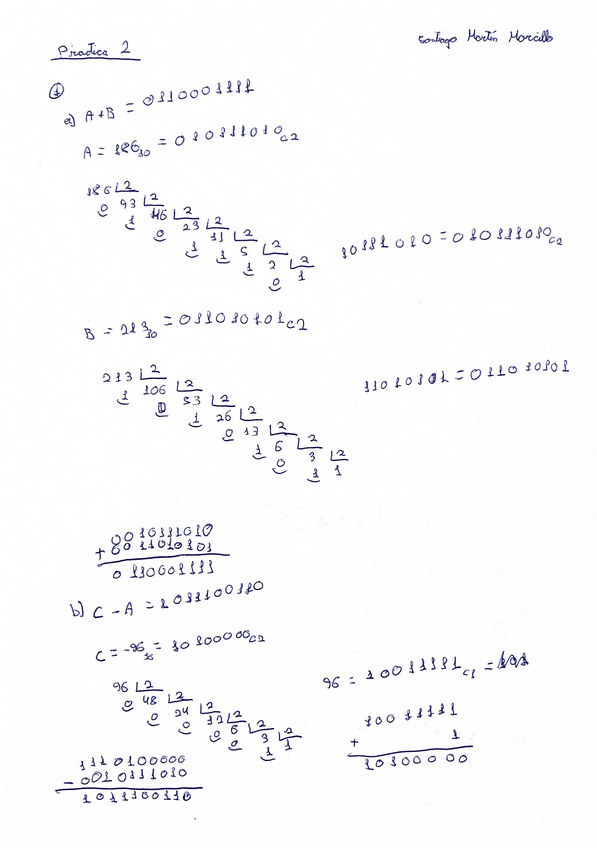 Santiago Martín Morcillo
Practica 2
1
a) A+B = 0110001111
A = 186₁₀ = 010111010 C2
186 |2
0 93 |2
1 46 |2
0 23 |2
1 11 |2
1 5 |2
1 2 |2
0 1
10111010 = 010111010 C2
B = 213₁₀ = 011010101 C2
213 |2
1 106 |2
0 53 |2
1 26 |2
0 13 |2
1 6 |2
0 3 |2
1 1
11010101 = 011010101
0010111010
+ 0011010101
0110001111
b) C - A = 1011100110
C = -96₁₀ = 10100000 C2
96 |2
0 48 |2
0 24 |2
0 12 |2
0 6 |2
0 3 |2
1 1
96 = 10011111 C1 =
10011111
+ 1
10100000
1110100000
- 0010111010
1011100110